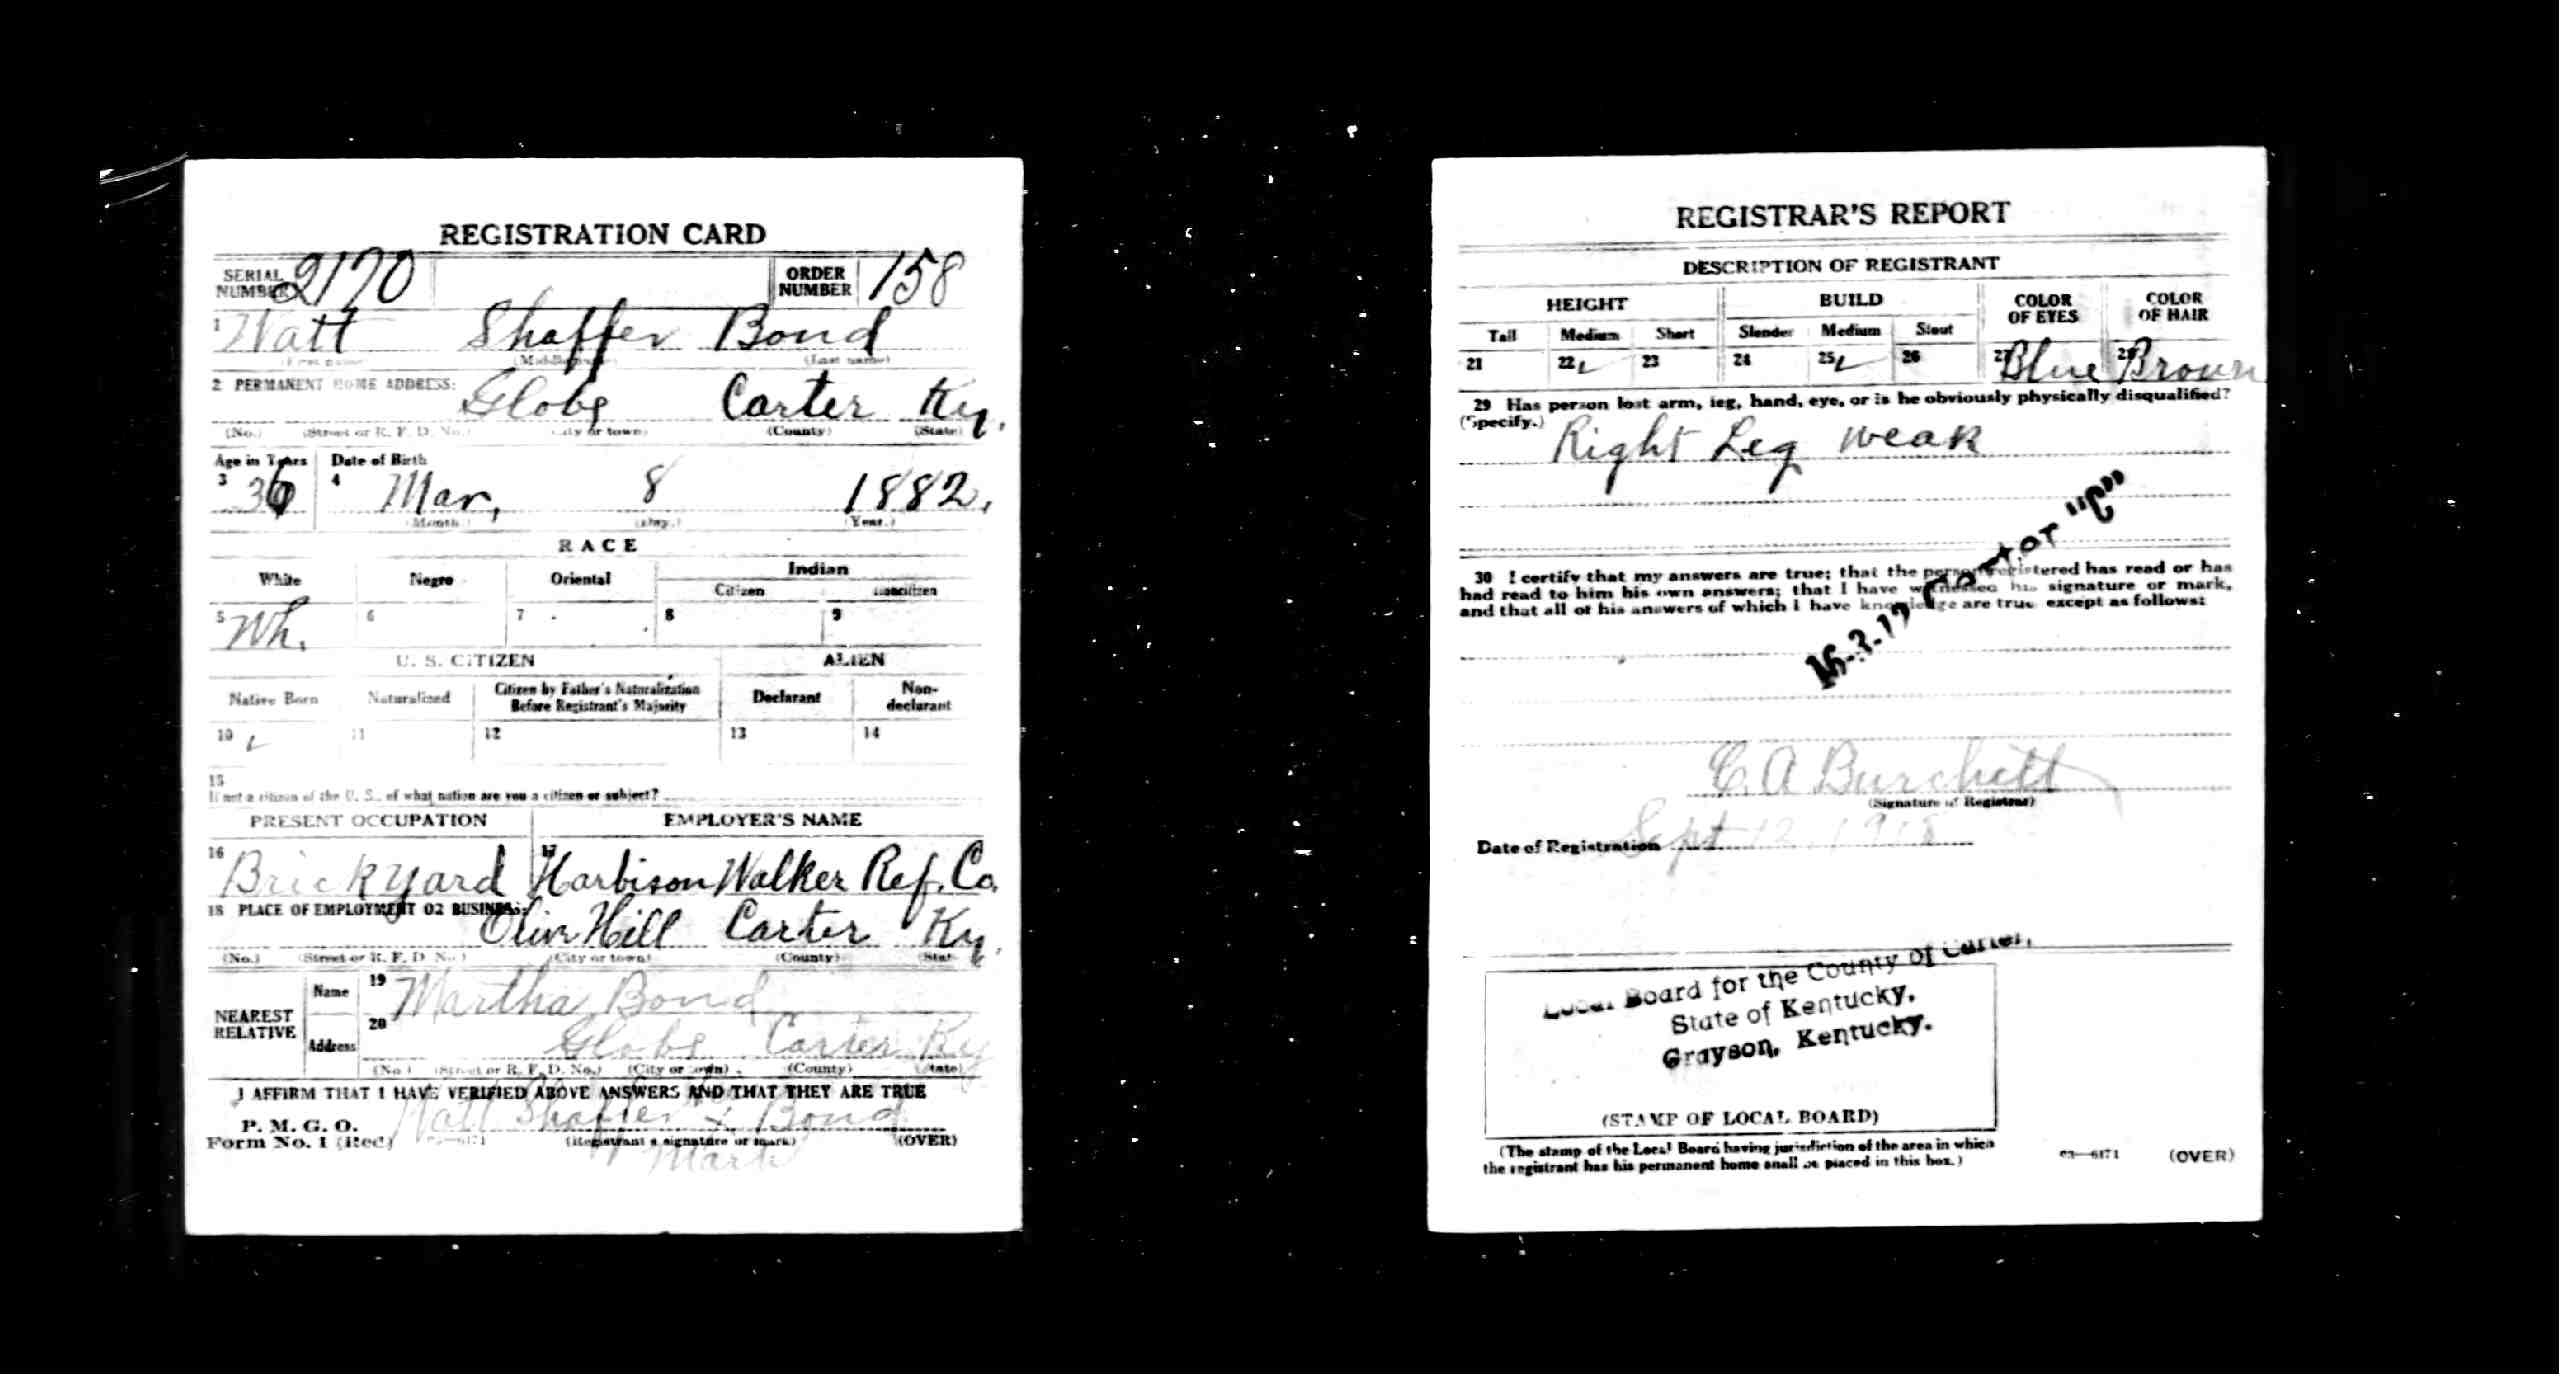 REGISTRATION CARD
SERIAL NUMBER 2170 ORDER NUMBER 158
1 Watt Shaffer Bond
(First name) (Middle name) (Last name)
2 PERMANENT HOME ADDRESS:
Globe Carter Ky.
(No.) (Street or R. F. D. No.) (City or town) (County) (State)
Age in Years Date of Birth
3 36 4 Mar, 8 1882.
(Month.) (Day.) (Year.)
RACE
White Negro Oriental Indian
Citizen Noncitizen
5 Wh. 6 7 8 9
U. S. CITIZEN ALIEN
Native Born Naturalized Citizen by Father's Naturalization Before Registrant's Majority Declarant Non-declarant
10 11 12 13 14
15
If not a citizen of the U. S., of what nation are you a citizen or subject?
PRESENT OCCUPATION EMPLOYER'S NAME
16 Brickyard 17 Harbison Walker Ref. Co.
18 PLACE OF EMPLOYMENT OR BUSINESS:
Olive Hill Carter Ky.
(No.) (Street or R. F. D. No.) (City or town) (County) (State)
NEAREST RELATIVE
Name 19 Martha Bond
Address 20 Globe Carter Ky
(No.) (Street or R. F. D. No.) (City or town) (County) (State)
I AFFIRM THAT I HAVE VERIFIED ABOVE ANSWERS AND THAT THEY ARE TRUE
P. M. G. O.
Form No. 1 (Red) 03—6171
Watt Shaffer x Bond
(Registrant's signature or mark) (OVER)
Mark
REGISTRAR'S REPORT
DESCRIPTION OF REGISTRANT
HEIGHT BUILD COLOR OF EYES COLOR OF HAIR
Tall Medium Short Slender Medium Stout
21 22 23 24 25 26 27 Blue 28 Brown
29 Has person lost arm, leg, hand, eye, or is he obviously physically disqualified?
(Specify.) Right Leg weak
16-3-17 Carter "C"
30 I certify that my answers are true; that the person registered has read or has
had read to him his own answers; that I have witnessed his signature or mark,
and that all of his answers of which I have knowledge are true except as follows:
C. A Burchett
(Signature of Registrar)
Date of Registration Sept 12, 1918
Local Board for the County of Carter,
State of Kentucky.
Grayson, Kentucky.
(STAMP OF LOCAL BOARD)
(The stamp of the Local Board having jurisdiction of the area in which
the registrant has his permanent home shall be placed in this box.)
03—6171 (OVER)